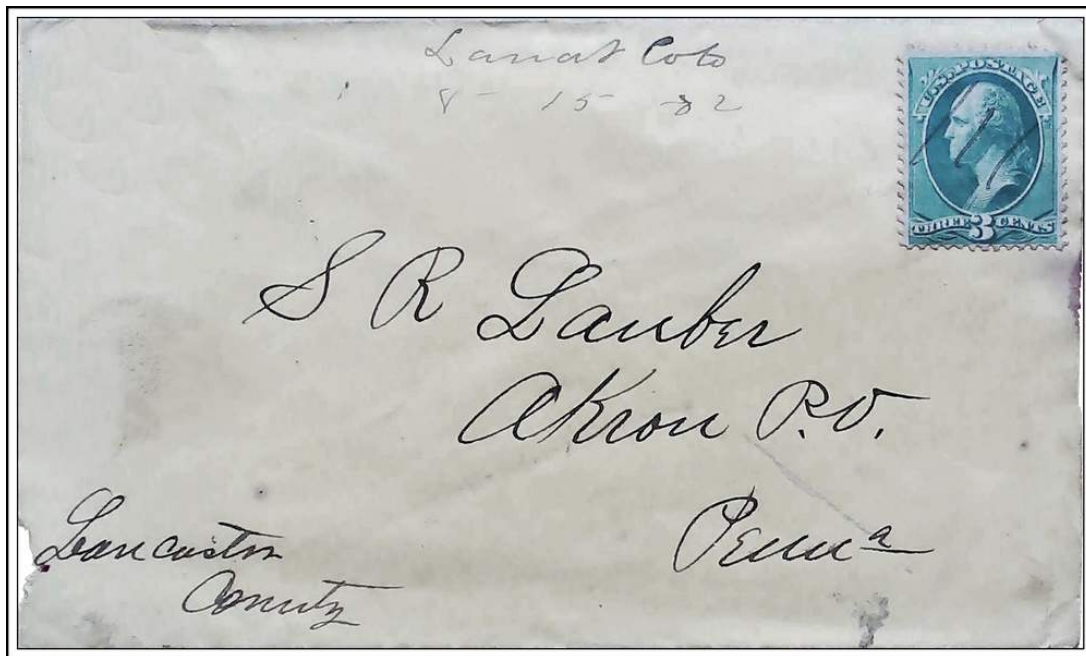 Lanat Colo
8 - 15 - 82
U.S. POSTAGE
THREE 3 CENTS
S R Lauber
Akron P.O.
Penna
Lancaster
County